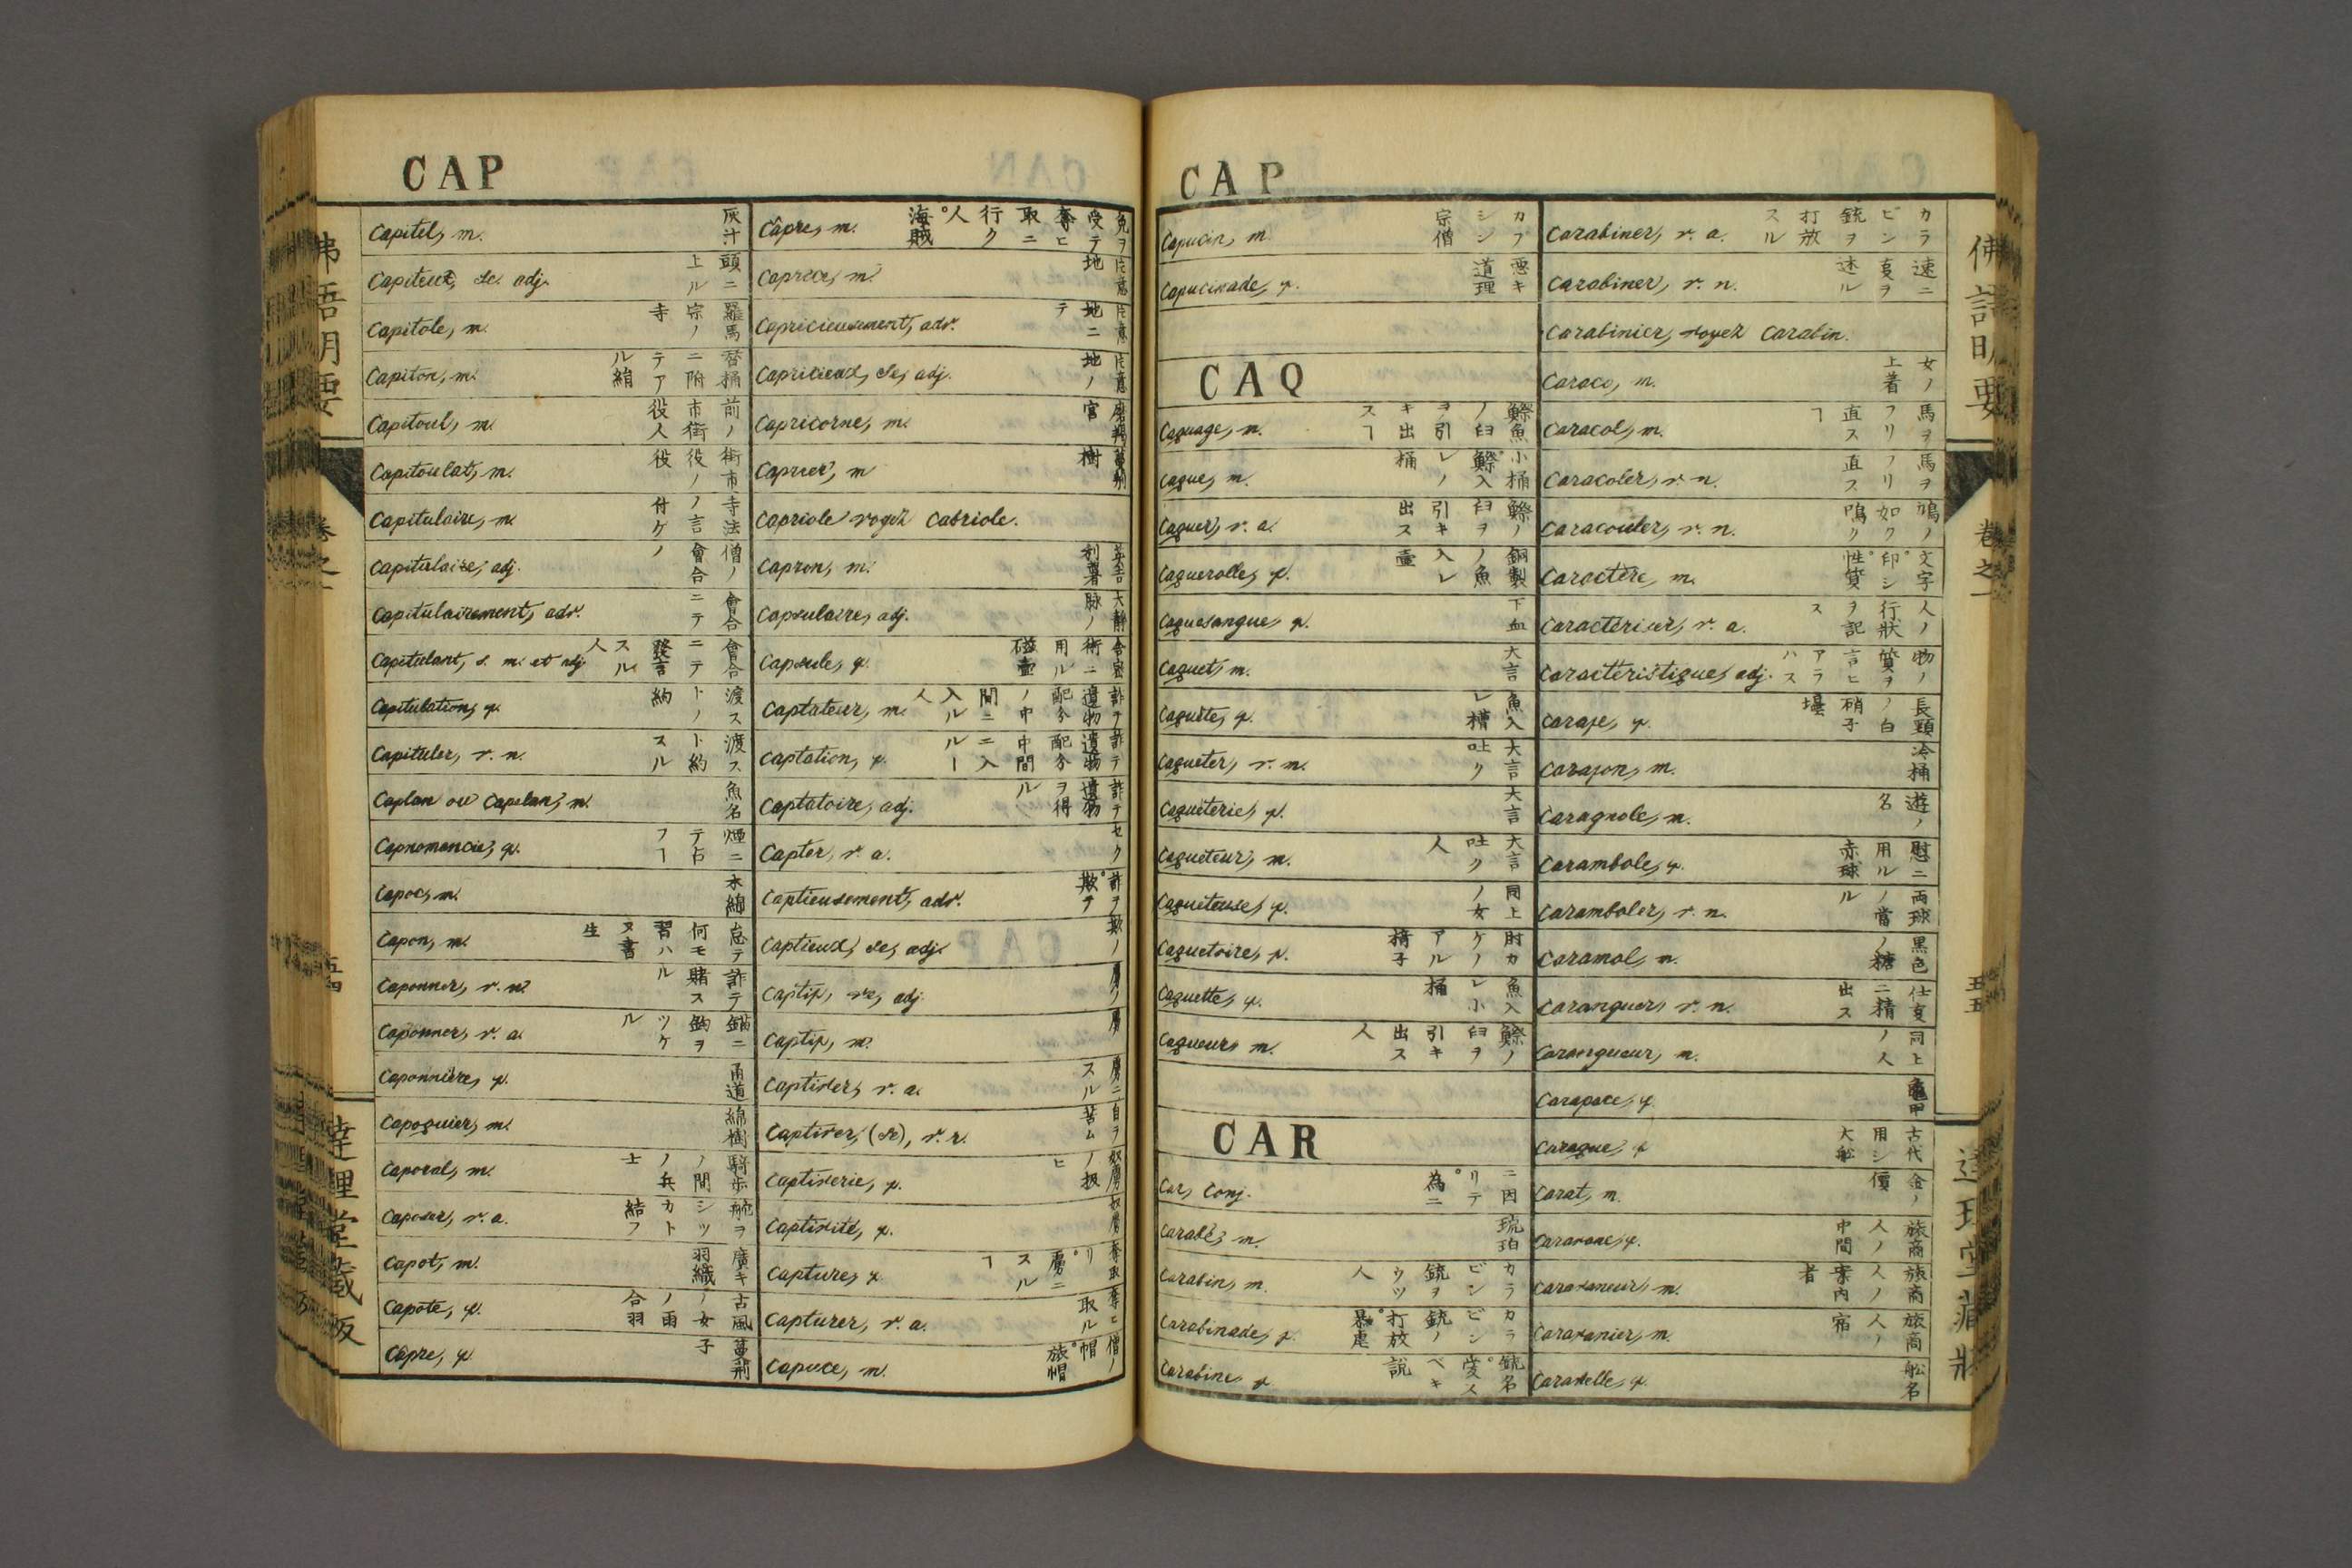 CAP
Capitel, m. 灰汁
Capiteux, se. adj. 頭ニ上ル
Capitole, m. 羅馬宗ノ寺
Capiton, m.
Capitoul, m. 前ノ市街役人
Capitoulat, m. 街市役ノ役
Capitulaire, m. 寺法ノ言付ケ
Capitulaire, adj. 僧ノ會合ノ
Capitulairement, adv. 會合ニテ
Capitulant, s. m. et adj. 會合ニテ發言スル人
Capitulation, f. 渡ストノ約
Capituler, v. n. 渡スト約スル
Caplan ou Capelan, m. 魚名
Capnomancie, f. 煙ニテ占フヿ
Capoc, m. 木綿
Capon, m. 怠テ何モ習ハヌ書生
Caponner, v. n. 詐テ賭スル
Caponner, v. a. 錨ニ鈎ヲツケル
Caponnière, f. 甬道
Capoquier, m. 綿樹
Caporal, m. 騎歩ノ間ノ兵士
Caposer, v. a. 舵ヲシツカト結フ
Capot, m. 廣キ羽織
Capote, f. 古風ノ女ノ雨合羽
Câpre, f. 蔓荊子
Câpre, m. 免ヲ受テ奪ヒ取ニ行ク人。海賊
Caprice, m. 片意地
Capricieusement, adv. 片意地ニテ
Capricieux, se, adj. 片意地ノ
Capricorne, m. 磨羯宮
Caprier, m. 蔓荊樹
Capriole voyez Cabriole.
Capron, m.
Capsulaire, adj. 大静脉ノ
Capsule, f. 舎密術ニ用ル磁壷
Captateur, m. 詐テ遺物配分ノ中間ニ入ル人
Captation, f. 詐テ遺物配分中間ニ入ルヿ
Captatoire, adj. 詐テ遺物ヲ得ル
Capter, v. a.
Captieusement, adv. 詐ヲ。欺テ
Captieux, se, adj. 欺ノ
Captif, ve, adj. 虜ノ
Captif, m. 虜
Captiver, v. a. 虜ニスル
Captiver, (se), v. r. 自ラ苦ム
Captiverie, f. 奴虜ノ扱ヒ
Captivité, f. 奴虜
Capture, f. 奪取リ。虜ニスルヿ
Capturer, v. a. 奪ヒ取ル
Capuce, m. 僧ノ帽。旅帽
佛語明要
卷之一
五四
達理堂藏版
CAP
Capucin, m. カプシシン宗僧
Capucinade, f. 悪キ道理
CAQ
Caquage, m. 鰶魚ノ臼ヲ引キ出スヿ
Caque, m. 小桶。鰶入レノ桶
Caquer, v. a. 鰶ノ臼ヲ引キ出ス
Caquerolle, f. 銅製ノ魚入レ壷
Caquesangue, f. 下血
Caquet, m. 大言
Caquète, f. 魚入レ槽
Caqueter, v. n. 大言吐ク
Caqueterie, f. 大言
Caqueteur, m. 大言吐ク人
Caqueteuse, f. 同上ノ女
Caquetoire, f. 肘カケノアル椅子
Caquette, f. 魚入レ小桶
Caqueur, m. 鰶ノ臼ヲ引キ出ス人
CAR
Car, conj. ニ因リテ。為ニ
Carabé, m. 琥珀
Carabin, m. カラビン銃ヲウツ人
Carabinade, f. カラビン銃ノ打放。暴虐
Carabine, f. 銃名。愛スベキ説
Carabiner, v. a. カラビン銃ヲ打放スル
Carabiner, v. n. 速ニ叓ヲ述ル
Carabinier, voyez Carabin.
Caraco, m. 女ノ上着
Caracol, m. 馬ヲフリ直スヿ
Caracoler, v. n. 馬ヲフリ直ス
Caracouler, v. n. 鳩ノ如ク鳴ク
Caractère, m. 文字。印シ。性質
Caractériser, v. a. 人ノ行狀ヲ記ス
Caractéristique, adj. 物ノ質ヲ言ヒアラハス
Carafe, f. 長頸ノ白硝子壜
Carafon, m. 冷桶
Caragnole, m. 遊ノ名
Carambole, f. 慰ニ用ル赤球
Caramboler, v. n. 両球ノ當ル
Caramel, m. 黒色ノ糖
Caranguer, v. n. 仕叓ニ精出ス
Carangueur, m. 同上ノ人
Carapace, f. 龜甲
Caraque, f. 古代用シ大舩
Carat, m. 金ノ價
Caravane, f. 旅商人ノ中間
Caravaneur, m. 旅商人ノ案内者
Caravanier, m. 旅商人ノ宿
Caravelle, f. 舩名
佛語明要
卷之一
五五
達理堂藏版